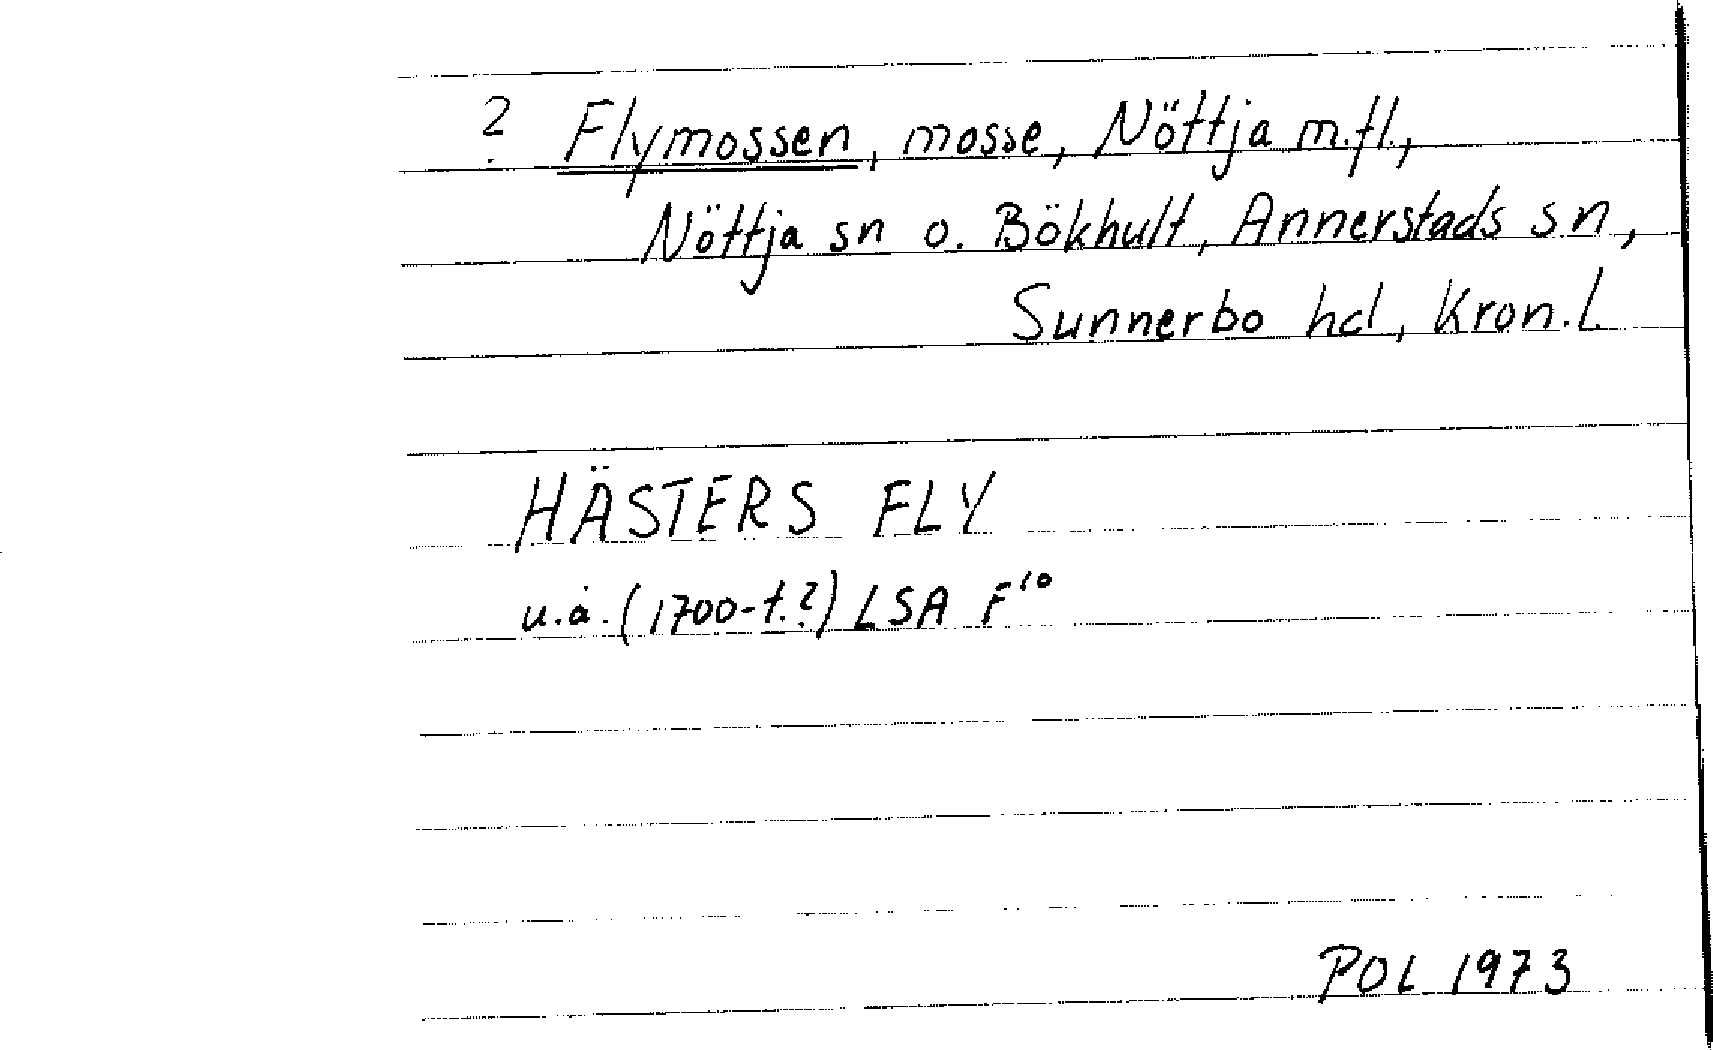 ? Flymossen, mosse, Nöttja m.fl.,
Nöttja sn o. Bökhult, Annerstads sn,
Sunnerbo hd, Kron. L.
HÄSTERS FLY
u.å. (1700-t.?) LSA F¹⁰
POL 1973